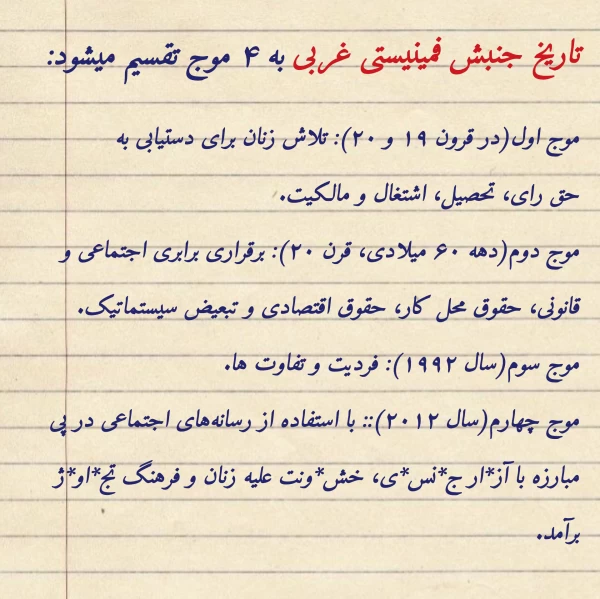 تاریخ جنبش فمینیستی غربی به ۴ موج تقسیم میشود:
موج اول(در قرون ۱۹ و ۲۰): تلاش زنان برای دستیابی به
حق رای، تحصیل، اشتغال و مالکیت.
موج دوم(دهه ۶۰ میلادی، قرن ۲۰): برقراری برابری اجتماعی و
قانونی، حقوق محل کار، حقوق اقتصادی و تبعیض سیستماتیک.
موج سوم(سال ۱۹۹۲): فردیت و تفاوت ها.
موج چهارم(سال ۲۰۱۲):: با استفاده از رسانه‌های اجتماعی در پی
مبارزه با آز*ار ج*نس*ی، خش*ونت علیه زنان و فرهنگ تج*او*ژ
برآمد.